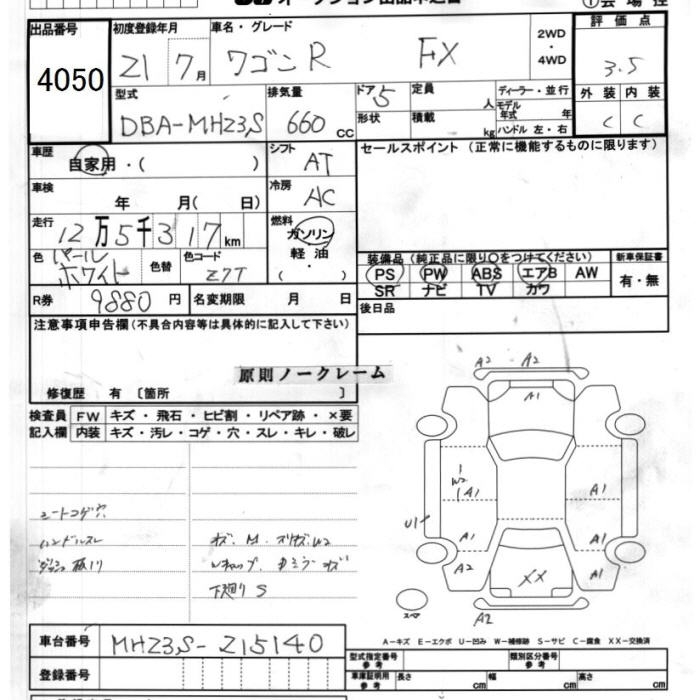 ①会場控
出品番号 初度登録年月 車名・グレード 2WD・4WD 評価点
4050 21 7月 ワゴンR FX 3.5
型式 排気量 ドア 5 定員 人 ディーラー・並行 外装 内装
DBA-MH23S 660 CC 形状 積載 kg モデル年式 年 ハンドル 左・右 C C
車歴 シフト セールスポイント (正常に機能するものに限ります)
自家用・( ) AT
車検 年 月( 日) 冷房 AC
走行 12万5千317km 燃料 ガソリン 軽油・( )
色 パールホワイト 色替 色コード Z7T
装備品 (純正品に限り○をつけてください) 新車保証書
PS PW ABS エアB AW 有・無
SR ナビ TV カワ
R券 9880円 名変期限 月 日 後日品
注意事項申告欄(不具合内容等は具体的に記入して下さい)
原則ノークレーム
修復歴 有 [箇所 ]
検査員 FW キズ・飛石・ヒビ割・リペア跡・×要
記入欄 内装 キズ・汚レ・コゲ・穴・スレ・キレ・破レ
A2 A2
A1
W2
A1 A1
U1
A1 A1
A2 A1
XX
スペア A2
シートコゲ穴
ハンドルスレ
下廻り S
A-キズ E-エクボ U-凹み W-補修跡 S-サビ C-腐食 XX-交換済
車台番号 MH23S-215140
型式指定番号 参考 類別区分番号 参考
登録番号 車庫証明用 参考 長さ cm 幅 cm 高さ cm